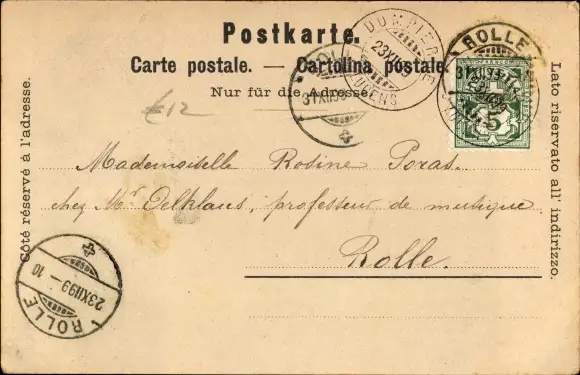 Postkarte.
Carte postale. — Cartolina postale.
Nur für die Adresse.
Côté réservé à l'adresse.
Lato riservato all' indirizzo.
€12
ROLLE
31 XII 99
23 XII 99
ROLLE
5
Mademoiselle Rosine Poras.
chez Mr Oelklaus, professeur de musique
Rolle.
23 XII 99 — 10
ROLLE